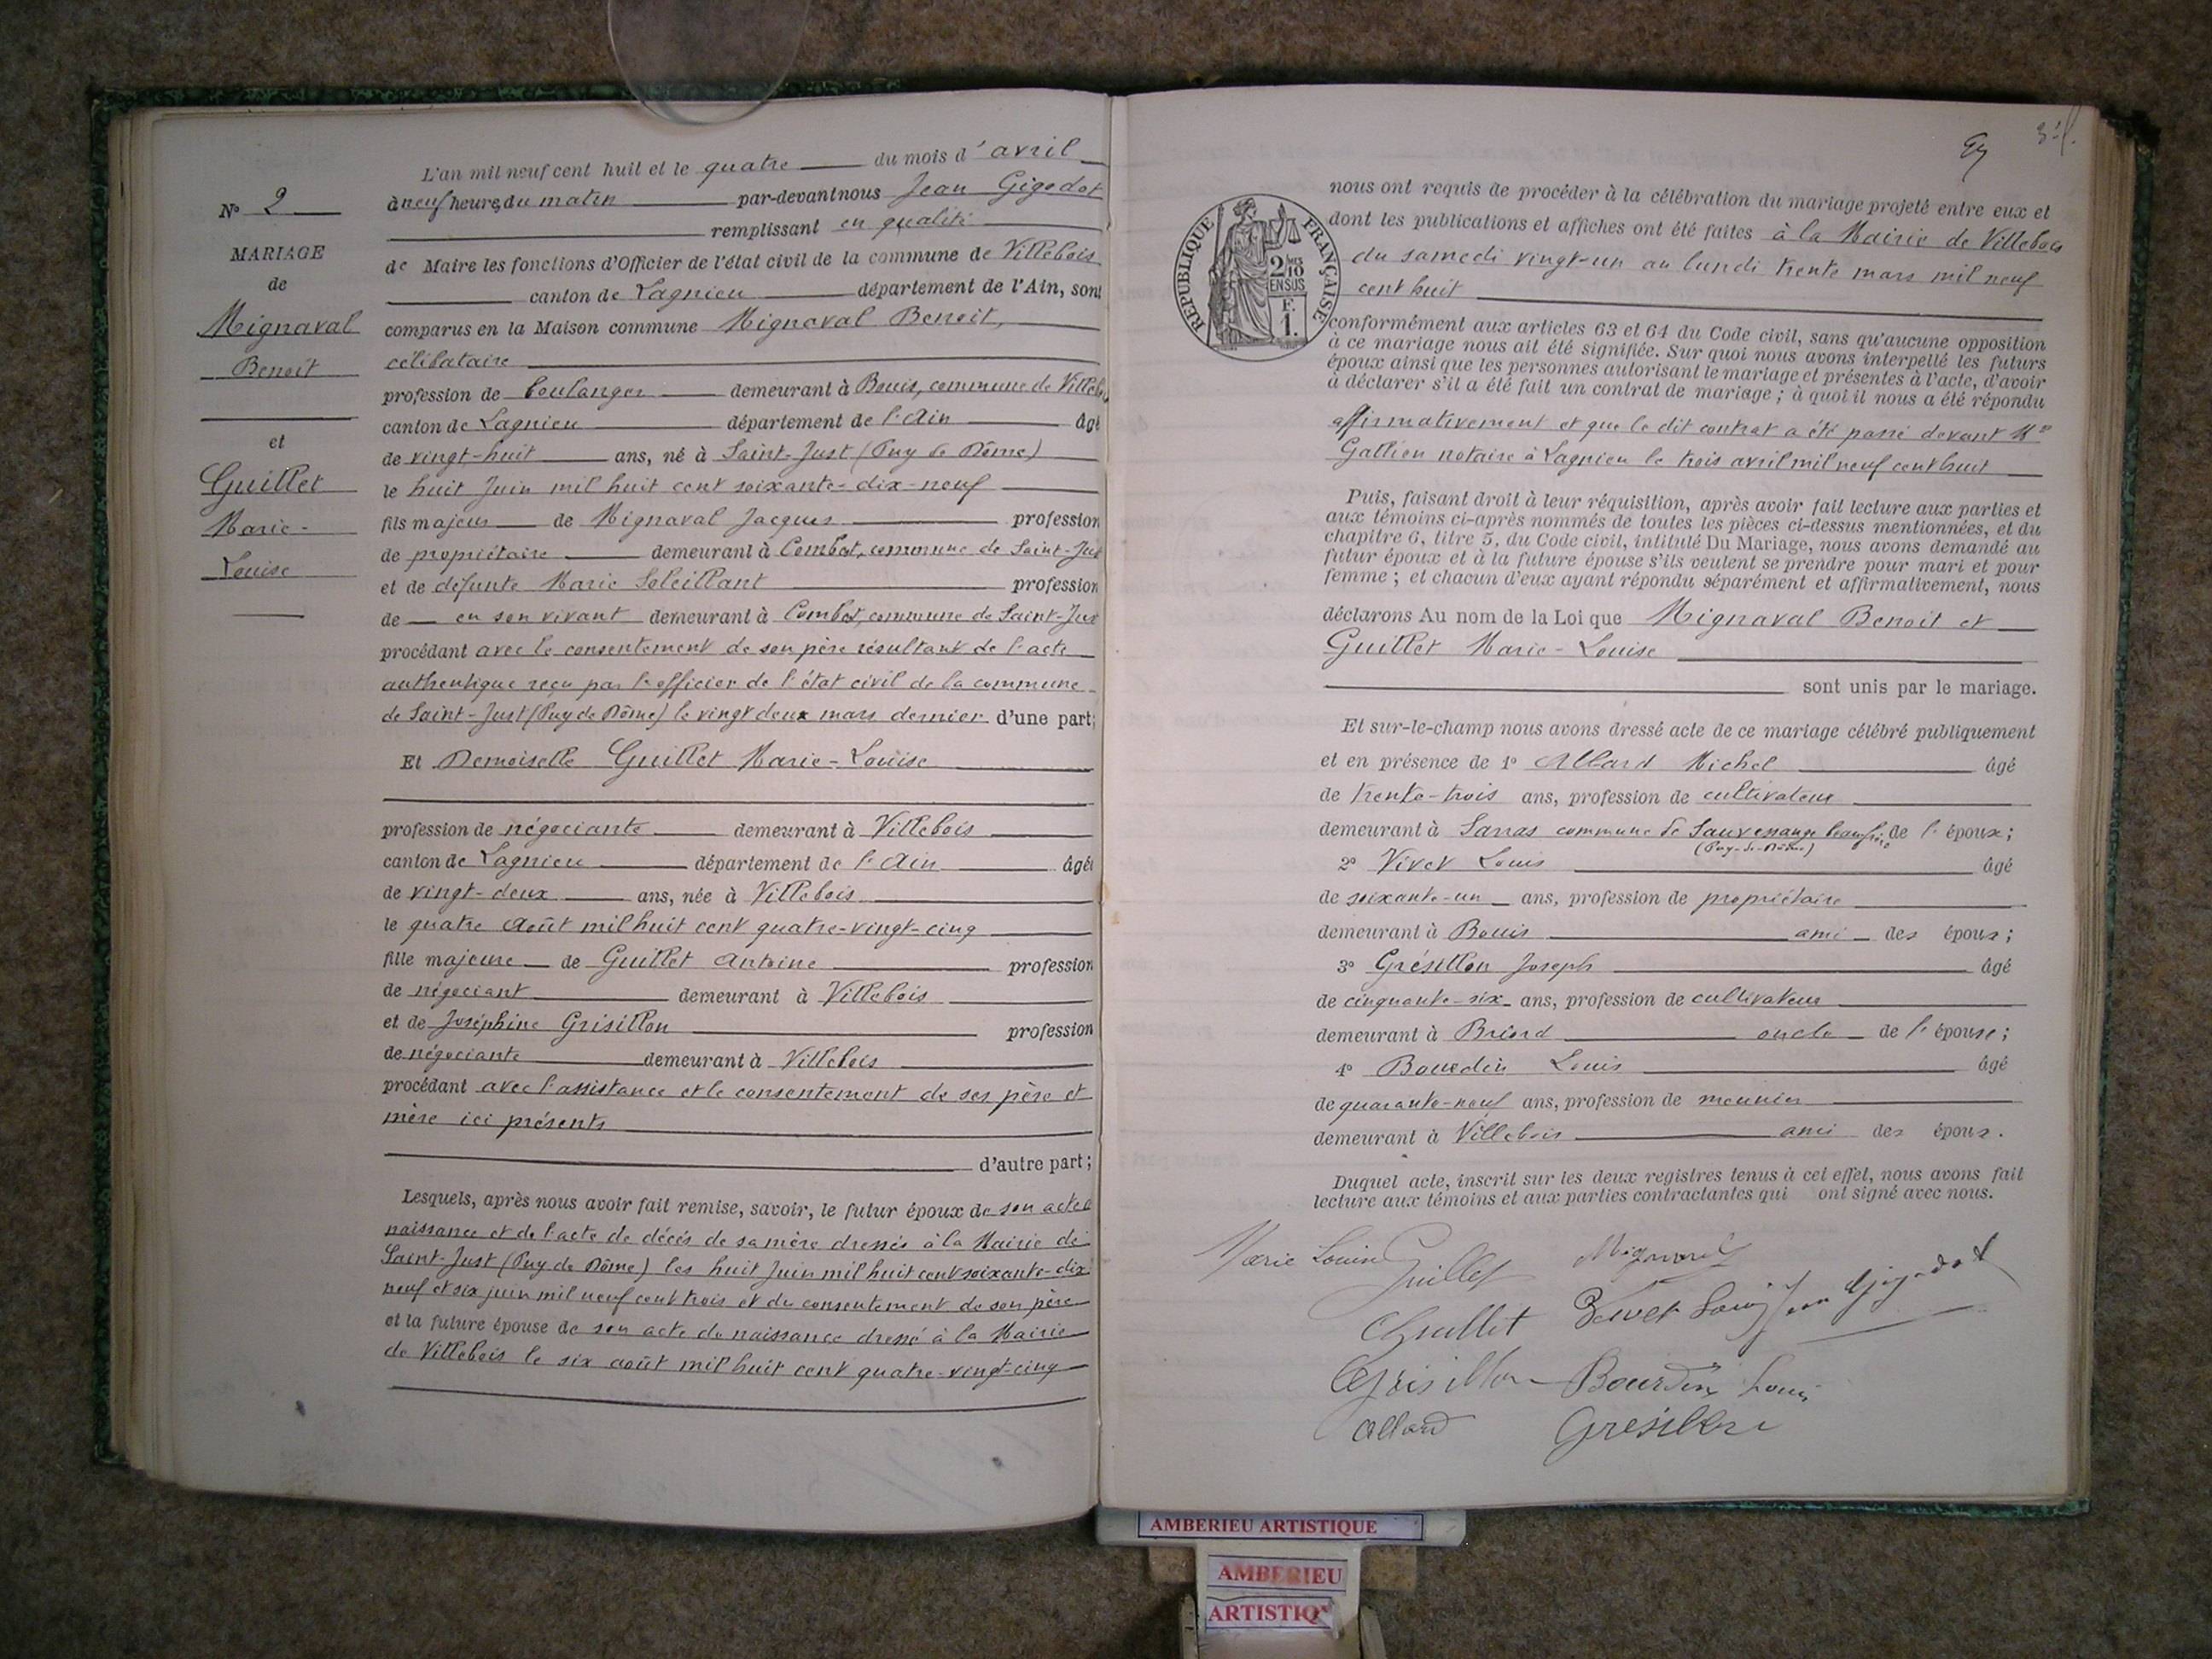 N° 2
MARIAGE
de
Mignaval
Benoit
et
Guillet
Marie-
Louise
L'an mil neuf cent huit et le quatre du mois d'avril
à neuf heures du matin par-devant nous Jean Gigodot
remplissant en qualité
de Maire les fonctions d'Officier de l'état civil de la commune de Villebois
canton de Lagnieu département de l'Ain, sont
comparus en la Maison commune Mignaval Benoit,
célibataire
profession de boulanger demeurant à Bouis, commune de Villebois
canton de Lagnieu département de l'Ain âgé
de vingt-huit ans, né à Saint-Just (Puy de Dôme)
le huit Juin mil huit cent soixante-dix-neuf
fils majeur de Mignaval Jacques profession
de propriétaire demeurant à Combat, commune de Saint-Just
et de défunte Marie Soleillant profession
de en son vivant demeurant à Combat, commune de Saint-Just
procédant avec le consentement de son père résultant de l'acte
authentique reçu par l'officier de l'état civil de la commune
de Saint-Just (Puy de Dôme) le vingt deux mars dernier d'une part;
Et Demoiselle Guillet Marie-Louise
profession de négociante demeurant à Villebois
canton de Lagnieu département de l'Ain âgée
de vingt-deux ans, née à Villebois
le quatre Août mil huit cent quatre-vingt-cinq
fille majeure de Guillet Antoine profession
de négociant demeurant à Villebois
et de Joséphine Grisillon profession
de négociante demeurant à Villebois
procédant avec l'assistance et le consentement de ses père et
mère ici présents
d'autre part;
Lesquels, après nous avoir fait remise, savoir, le futur époux de son acte de
naissance et de l'acte de décès de sa mère dressés à la Mairie de
Saint-Just (Puy de Dôme) les huit Juin mil huit cent soixante-dix
neuf et six juin mil neuf cent trois et du consentement de son père
et la future épouse de son acte de naissance dressé à la Mairie
de Villebois le six août mil huit cent quatre-vingt-cinq
RÉPUBLIQUE FRANÇAISE
2/10
EN SUS
F.
1.
nous ont requis de procéder à la célébration du mariage projeté entre eux et
dont les publications et affiches ont été faites à la Mairie de Villebois
du samedi vingt-un au lundi trente mars mil neuf
cent huit
conformément aux articles 63 et 64 du Code civil, sans qu'aucune opposition
à ce mariage nous ait été signifiée. Sur quoi nous avons interpellé les futurs
époux ainsi que les personnes autorisant le mariage et présentes à l'acte, d'avoir
à déclarer s'il a été fait un contrat de mariage; à quoi il nous a été répondu
affirmativement et que le dit contrat a été passé devant Me
Gallien notaire à Lagnieu le trois avril mil neuf cent huit
Puis, faisant droit à leur réquisition, après avoir fait lecture aux parties et
aux témoins ci-après nommés de toutes les pièces ci-dessus mentionnées, et du
chapitre 6, titre 5, du Code civil, intitulé Du Mariage, nous avons demandé au
futur époux et à la future épouse s'ils veulent se prendre pour mari et pour
femme; et chacun d'eux ayant répondu séparément et affirmativement, nous
déclarons Au nom de la Loi que Mignaval Benoit et
Guillet Marie-Louise
sont unis par le mariage.
Et sur-le-champ nous avons dressé acte de ce mariage célébré publiquement
et en présence de 1° Allard Michel âgé
de trente-trois ans, profession de cultivateur
demeurant à Sarras commune de Sauvessange beau-frère de l'époux;
(Puy-de-Dôme)
2° Vivet Louis âgé
de soixante-un ans, profession de propriétaire
demeurant à Bouis ami des époux;
3° Grésillon Joseph âgé
de cinquante-six ans, profession de cultivateur
demeurant à Briord oncle de l'épouse;
4° Bourdin Louis âgé
de quarante-neuf ans, profession de meunier
demeurant à Villebois ami des époux.
Duquel acte, inscrit sur les deux registres tenus à cet effet, nous avons fait
lecture aux témoins et aux parties contractantes qui ont signé avec nous.
Marie Louise Guillet Mignaval
Guillet Vivet Louis Jean Gigodot
Grisillon Bourdin Louis
Allard Grésillon
AMBERIEU ARTISTIQUE
AMBERIEU
ARTISTIQ